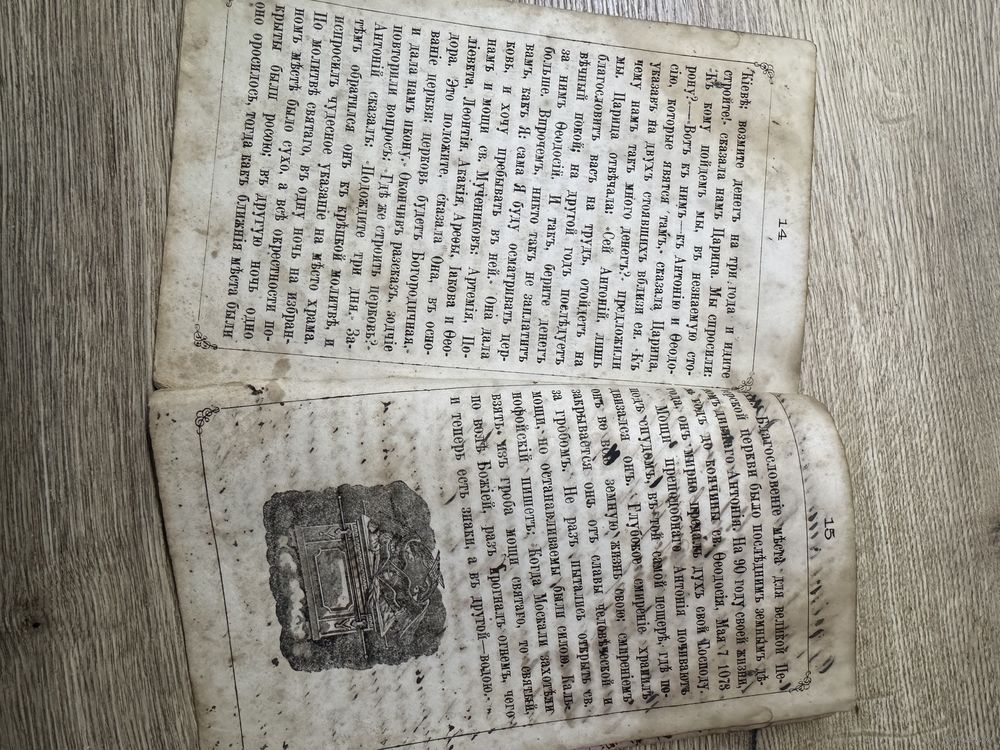 14
Кіевѣ; возмите денегъ на три года и идите
стройте!» сказала намъ Царица. Мы спросили:
«Къ кому пойдемъ мы, въ незнаемую сто-
рону?—Вотъ къ нимъ—къ Антонію и Ѳеодо-
сію, которые явятся тамъ,» сказала Царица,
указавъ на двухъ стоявшихъ вблизи ея. «Къ
чему намъ такъ много денегъ?» предложили
мы. Царица отвѣчала: «Сей Антоній, лишь
благословитъ васъ на трудъ, отойдетъ на
вѣчный покой; на другой годъ послѣдуетъ
за нимъ Ѳеодосій. И такъ, берите денегъ
больше. Впрочемъ, никто такъ не заплатитъ
вамъ, какъ Я: сама Я буду осматривать цер-
ковь, и хочу пребывать въ ней.» Она дала
намъ и мощи св. Мучениковъ: Артемія, По-
ліевкта, Леонтія, Акакія, Ареѳы, Іакова и Ѳео-
дора. Это положите, сказала Она, въ осно-
ваніе церкви; церковь будетъ Богородичная,»
и дала намъ икону.» Окончивъ разсказъ, зодчіе
повторили вопросъ: «Гдѣ же строить церковь?»
Антоній сказалъ: «Подождите три дня.» За-
тѣмъ обратился онъ къ крѣпкой молитвѣ, и
испросилъ чудесное указаніе на мѣсто храма.
По молитвѣ святаго, въ одну ночь на избран-
номъ мѣстѣ было сухо, а всѣ окрестности по-
крыты были росою; въ другую ночь одно
оно оросилось, тогда какъ ближнія мѣста были
15
Благословеніе мѣста для великой Пе-
церкви было послѣднимъ земнымъ дѣ-
дивнаго Антонія. На 90 году своей жизни,
годъ до кончины св. Ѳеодосія, Мая 7 1073
онъ мирно предалъ духъ свой Господу.
Мощи преподобнаго Антонія почиваютъ
подъ спудомъ, въ той самой пещерѣ, гдѣ по-
двизался онъ. Глубокое смиреніе хранилъ
онъ во всю земную жизнь свою; смиреніемъ
закрывается онъ отъ славы человѣческой и
за гробомъ. Не разъ пытались открыть св.
мощи, но останавливаемы были силою. Каль-
нофойскій пишетъ: Когда Москали захотѣли
взять изъ гроба мощи святаго, то святый,
по волѣ Божіей, разъ прогналъ огнемъ, чего
и теперь есть знаки, а въ другой—водою.»